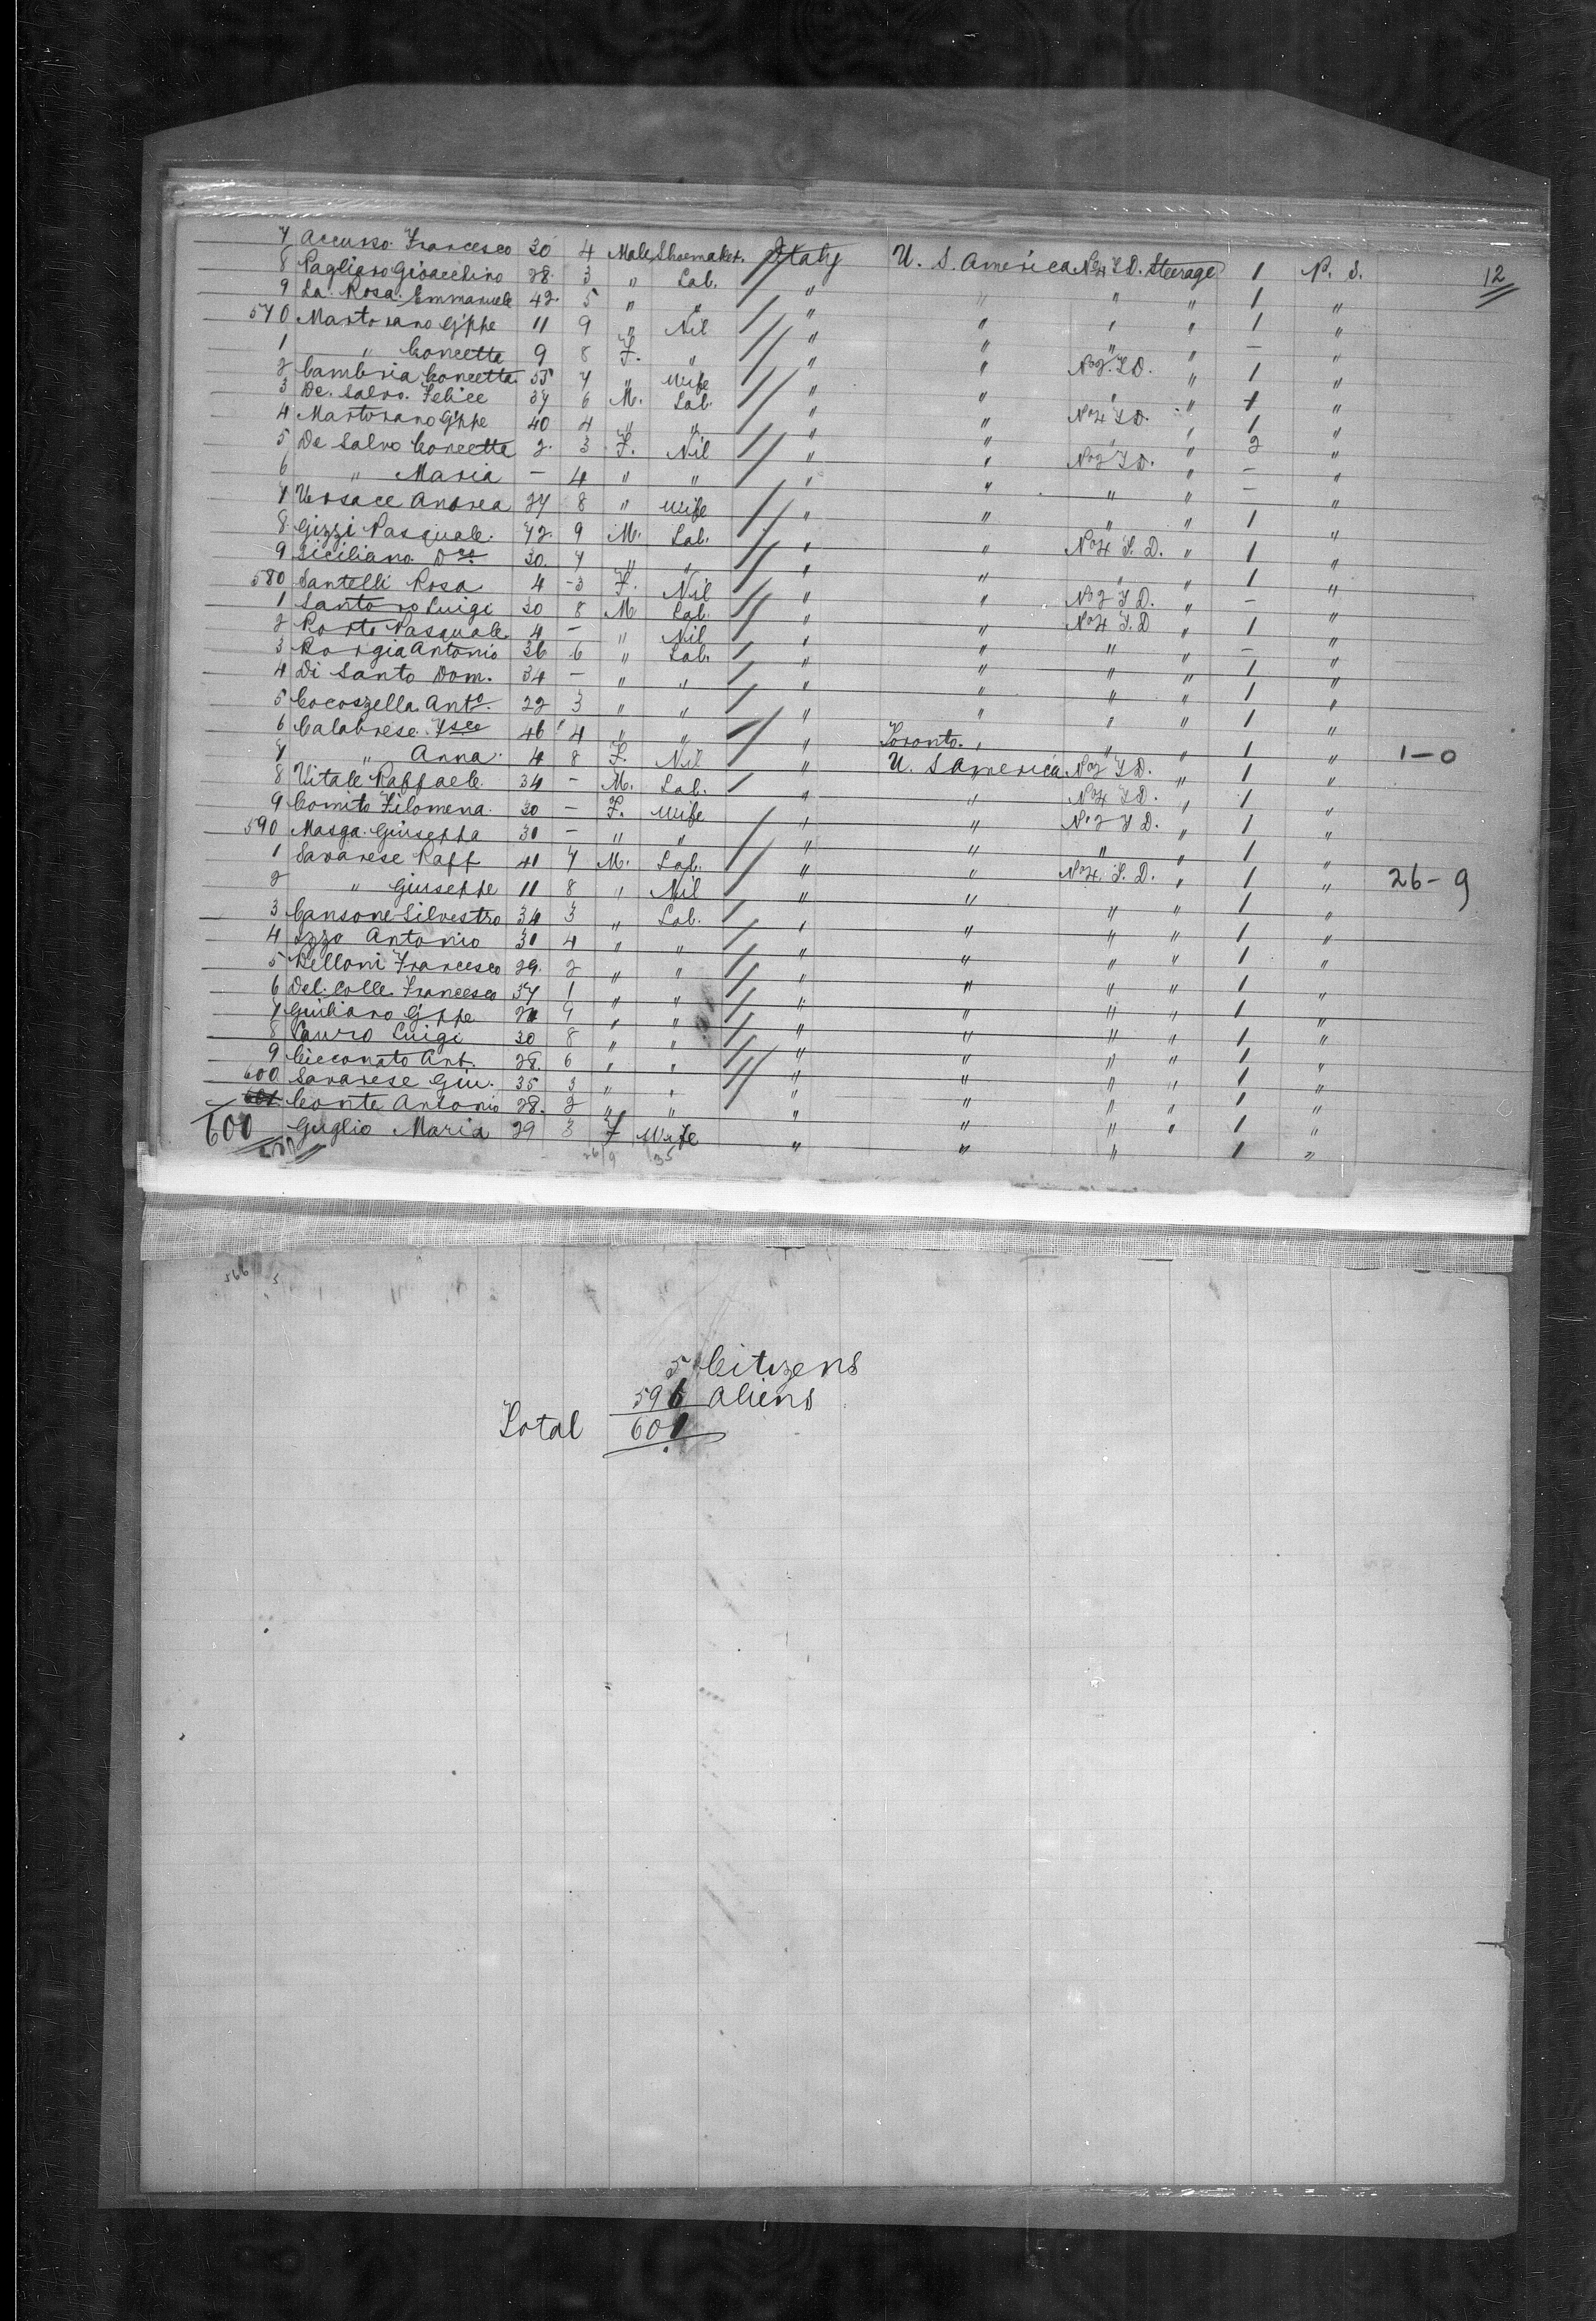 12
7 Accurso Francesco 30 4 Male Shoemaker. Italy U. S. America No 4 S D. Steerage 1 N. S.
8 Pagliaro Gioacchino 28. 3 " Lab. " " " " 1 "
9 La Rosa Emmanuele 42. 5 " " " " " " 1 "
570 Martorano Gppe 11 9 " Nil " " " " — "
1 " Concetta 9 8 F. " " " No 2 S D. " 1 "
2 Cambria Concetta 55 7 " Wife " " " " 1 "
3 De Salvo Felice 37 6 M. Lab. " " No 4 S D. " 1 "
4 Martorano Gppe 40 4 " " " " " " 2 "
5 De Salvo Concetta 2. 3 F. Nil " " No 2 S D. " — "
6 " Maria — 4 " " " " " " — "
7 Ursace Andrea 27 8 " Wife " " " " 1 "
8 Gizzi Pasquale. 42 9 M. Lab. " " No 4 S. D. " 1 "
9 Siciliano 30. 7 " " " " " " 1 "
580 Santelli Rosa 4 -3 F. Nil " " No 2 S D. " — "
1 Santoro Luigi 30 8 M Lab. " " No 4 S. D " 1 "
2 Porto Pasquale 4 — " Nil " " " " — "
3 Borgia Antonio 36 6 " Lab. " " " " 1 "
4 Di Santo Dom. 34 — " " " " " " 1 "
5 Cocozzella Anto. 22 3 " " " " " " 1 "
6 Calabrese Fsco 46 4 " " " Toronto. " " 1 " 1-0
7 " Anna. 4 8 F. Nil " U. S America No 2 S D. " 1 "
8 Vitale Raffaele. 34 — M. Lab. " " No 4 S D. " 1 "
9 Comito Filomena. 30 — F. Wife " " No 2 S D. " 1 "
590 Masga Giuseppa 30 — " " " " " " 1 "
1 Savarese Raff 41 7 M. Lab. " " No 4. S. D. " 1 " 26-9
2 " Giuseppe 11 8 " Nil " " " " 1 "
3 Cansone Silvestro 34 3 " Lab. " " " " 1 "
4 Izzo Antonio 30 4 " " " " " " 1 "
5 Belloni Francesco 29. 2 " " " " " " 1 "
6 Del. Colle Francesco 37 1 " " " " " " 1 "
7 Giuliano Gppe 9 " " " " " " 1 "
8 Lauro Luigi 30 8 " " " " " " 1 "
9 Cicconato Ant. 28. 6 " " " " " " 1 "
600 Savarese Giu. 35 3 " " " " " " 1 "
601 Conte Antonio 28. 2 " " " " " " 1 "
600 Guglio Maria 29 3 F Wife " " " 1 "
26/9 35
5 Citizens
596 Aliens
Total 601